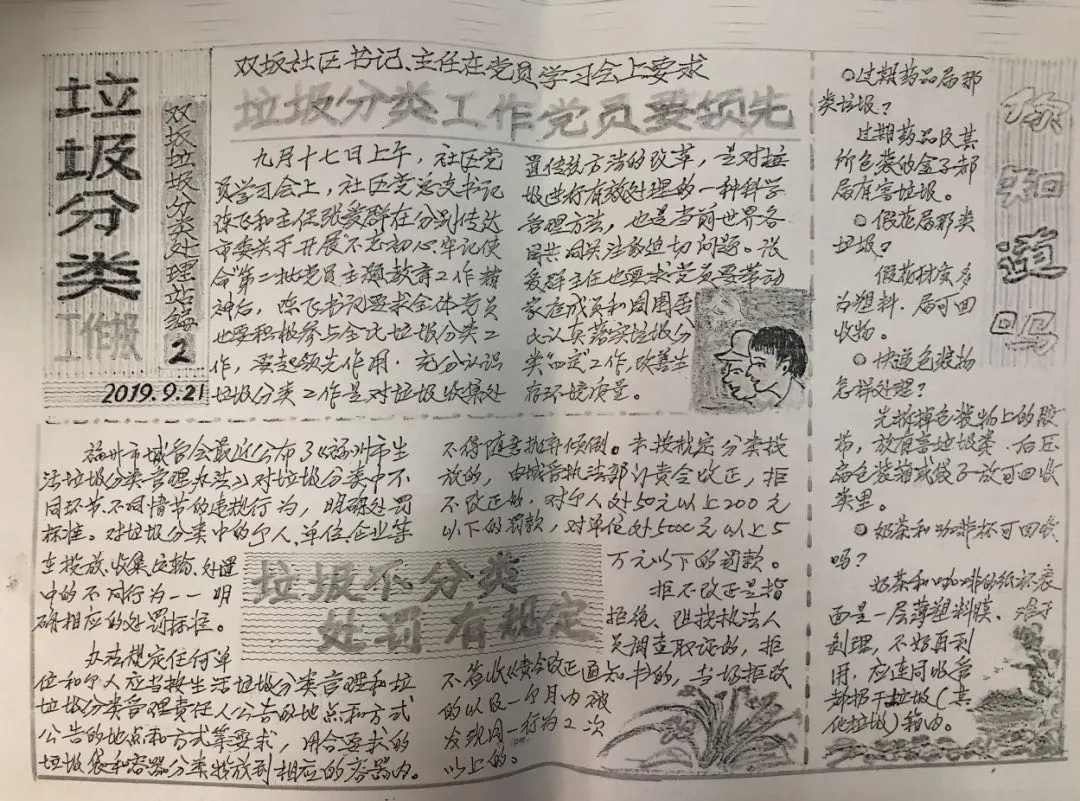 垃圾分类
工作报
双坂垃圾分类处理站编
2
2019.9.21
双坂社区书记、主任在党员学习会上要求
垃圾分类工作党员要领先
九月十七日上午，社区党
员学习会上，社区党总支书记
陈飞和主任张爱群在分别传达
市委关于开展“不忘初心牢记使
命”第二批党员主题教育工作精
神后，陈飞书记要求全体党员
也要积极参与全民垃圾分类工
作，要起领先作用．充分认识
垃圾分类工作是对垃圾收集处
置传统方法的改革，是对垃
圾进行有效处理的一种科学
管理方法，也是当前世界各
国共同关注最迫切问题。张
爱群主任也要求党员要带动
家庭成员和周围居
民认真落实垃圾分
类“四定”工作，改善生
存环境质量。
福州市城管会最近公布了《福州市生
活垃圾分类管理办法》对垃圾分类中不
同环节、不同情节的违规行为，明确处罚
标准。对垃圾分类中的个人、单位、企业等
在投放、收集、运输、处置
中的不同行为一一明
确相应的处罚标准。
办法规定任何单
位和个人应当按生活垃圾分类管理和垃
圾分类管理责任人公告的地点和方式
公告的地点和方式等要求，用合要求的
垃圾袋和容器分类投放到相应的容器内。
垃圾不分类
处罚有规定
不得随意抛弃倾倒。未按规定分类投
放的，由城管执法部门责令改正，拒
不改正的，对个人处50元以上200元
以下的罚款，对单位处5000元以上5
万元以下的罚款。
拒不改正是指
拒绝、阻挠执法人
员调查取证的，拒
不签收《责令改正通知书的，当场拒改
的以及一个月内被
发现同一行为2次
以上的。
你知道吗
○过期药品属那
类垃圾？
过期药品及其
所包装的盒子都
属有害垃圾。
○假花属那类
垃圾？
假花材质多
为塑料．属可回
收物。
○快递包装物
怎样处理？
先拆掉包装物上的胶
布，放有害垃圾类．后压
扁包装箱或袋子放可回收
类里。
○奶茶和咖啡杯可回收
吗？
奶茶和咖啡的纸杯表
面是一层薄塑料膜．难于
剥理，不好再利
用，应连同吸管
都扔干垃圾（其
他垃圾）箱内。